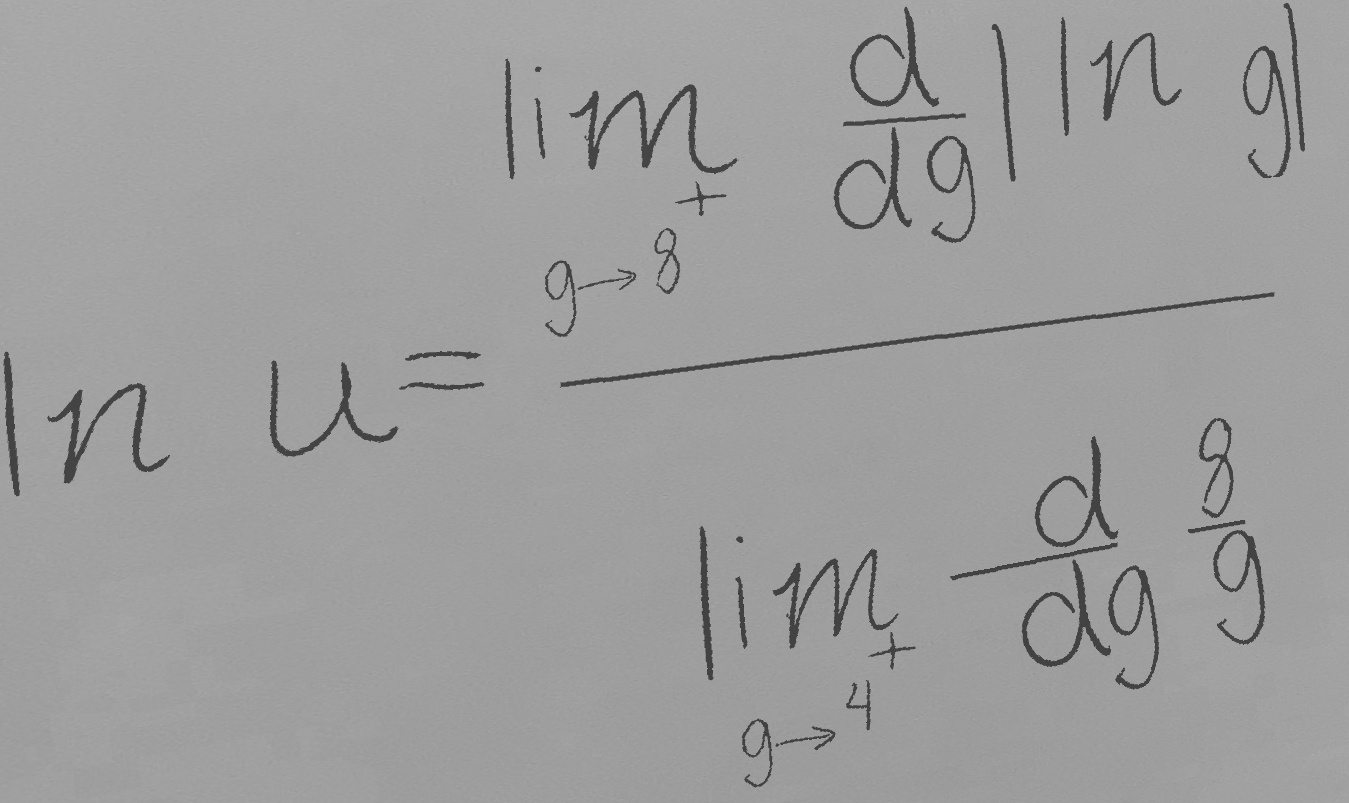 \ln u = \frac{\lim_{g \to 8^{+}} \frac{d}{dg} |\ln g|}{\lim_{g \to 4^{+}} \frac{d}{dg} \frac{8}{g}}